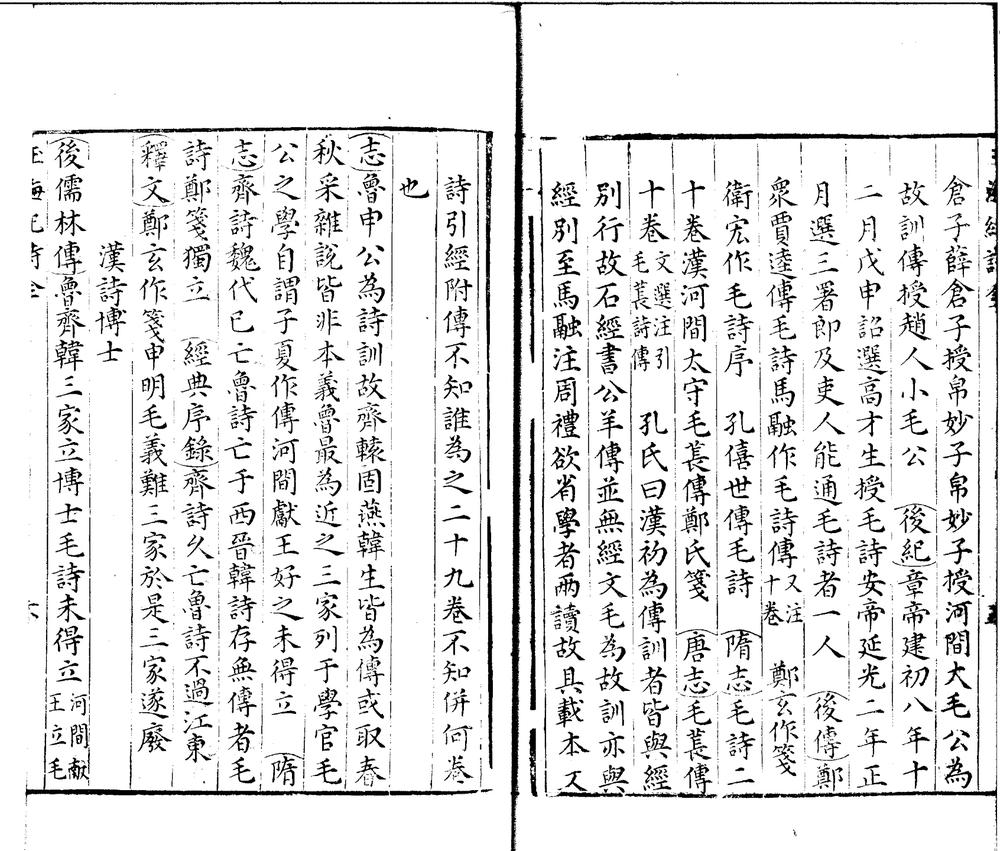 倉子薛倉子授帛妙子帛妙子授河間大毛公為
故訓傳授趙人小毛公　後紀章帝建初八年十
二月戊申詔選高才生授毛詩安帝延光二年正
月選三署郎及吏人能通毛詩者一人　後傳鄭
衆賈逵傳毛詩馬融作毛詩傳又注十卷　鄭玄作箋
衛宏作毛詩序　孔僖世傳毛詩　隋志毛詩二
十卷漢河間太守毛萇傳鄭氏箋　唐志毛萇傳
十卷文選注引毛萇詩傳　孔氏曰漢初為傳訓者皆與經
別行故石經書公羊傳並無經文毛為故訓亦與
經別至馬融注周禮欲省學者兩讀故具載本文
詩引經附傳不知誰為之二十九卷不知併何卷
也
志魯申公為詩訓故齊轅固燕韓生皆為傳或取春
秋采雜說皆非本義魯最為近之三家列于學官毛
公之學自謂子夏作傳河間獻王好之未得立　隋
志齊詩魏代已亡魯詩亡于西晉韓詩存無傳者毛
詩鄭箋獨立　經典序錄齊詩久亡魯詩不過江東
釋文鄭玄作箋申明毛義難三家於是三家遂廢
漢詩博士
後儒林傳魯齊韓三家立博士毛詩未得立河間献王立毛